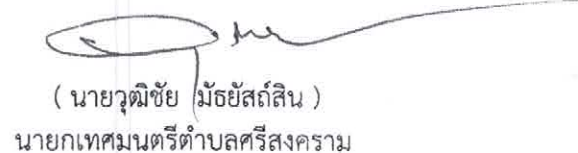 ( นายวุฒิชัย มัธยัสถ์สิน )
นายกเทศมนตรีตำบลศรีสงคราม